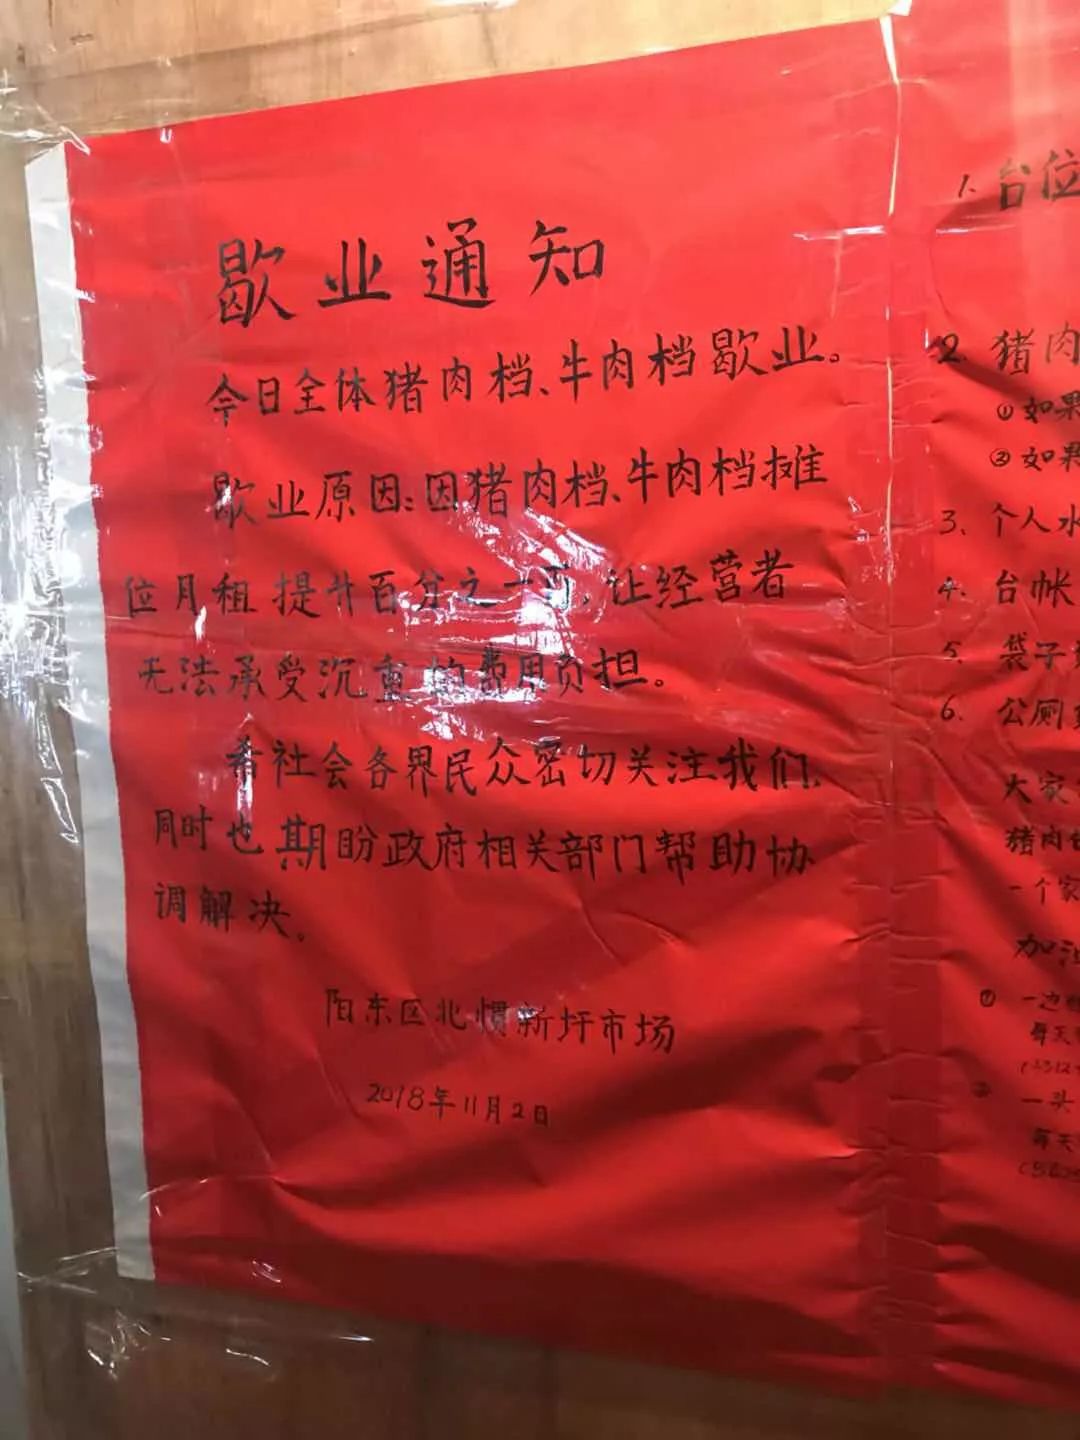 歇业通知
今日全体猪肉档、牛肉档歇业。
歇业原因:因猪肉档、牛肉档摊
位月租提升百分之一百,让经营者
无法承受沉重的费用负担。
希社会各界民众密切关注我们,
同时也期盼政府相关部门帮助协
调解决。
阳东区北惯新圩市场
2018年11月2日
1.台位
2.猪肉
①如果
②如果
3.个人水
4.台帐
5.袋子
6.公厕
大家
猪肉
一个家
加油
①一边
每天
②一头
每天